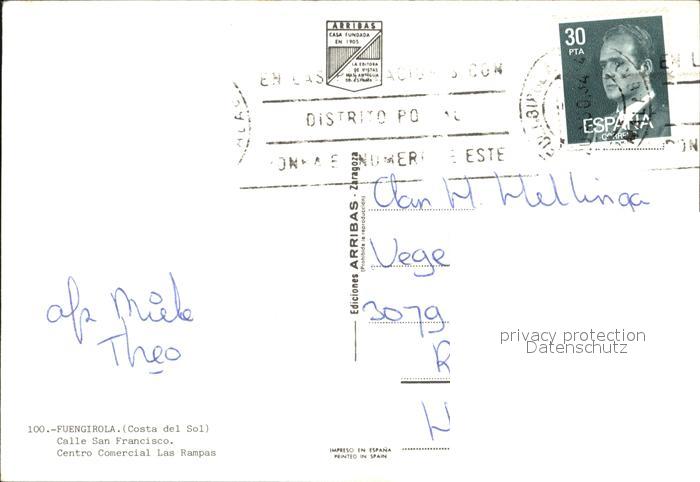 ARRIBAS
CASA FUNDADA
EN 1905
LA EDITORA
DE VISTAS
MAS ANTIGUA
DE ESPAÑA
30
PTA
ESPAÑA
CORREOS
EN LAS CON
DISTRITO
ESTE
EN
CON
Ediciones ARRIBAS - Zaragoza
(Prohibida la reproducción)
Clan H. Hellinga
Vege
3079
R
afz Miele
Theo
privacy protection
Datenschutz
100.-FUENGIROLA.(Costa del Sol)
Calle San Francisco.
Centro Comercial Las Rampas
IMPRESO EN ESPAÑA
PRINTED IN SPAIN